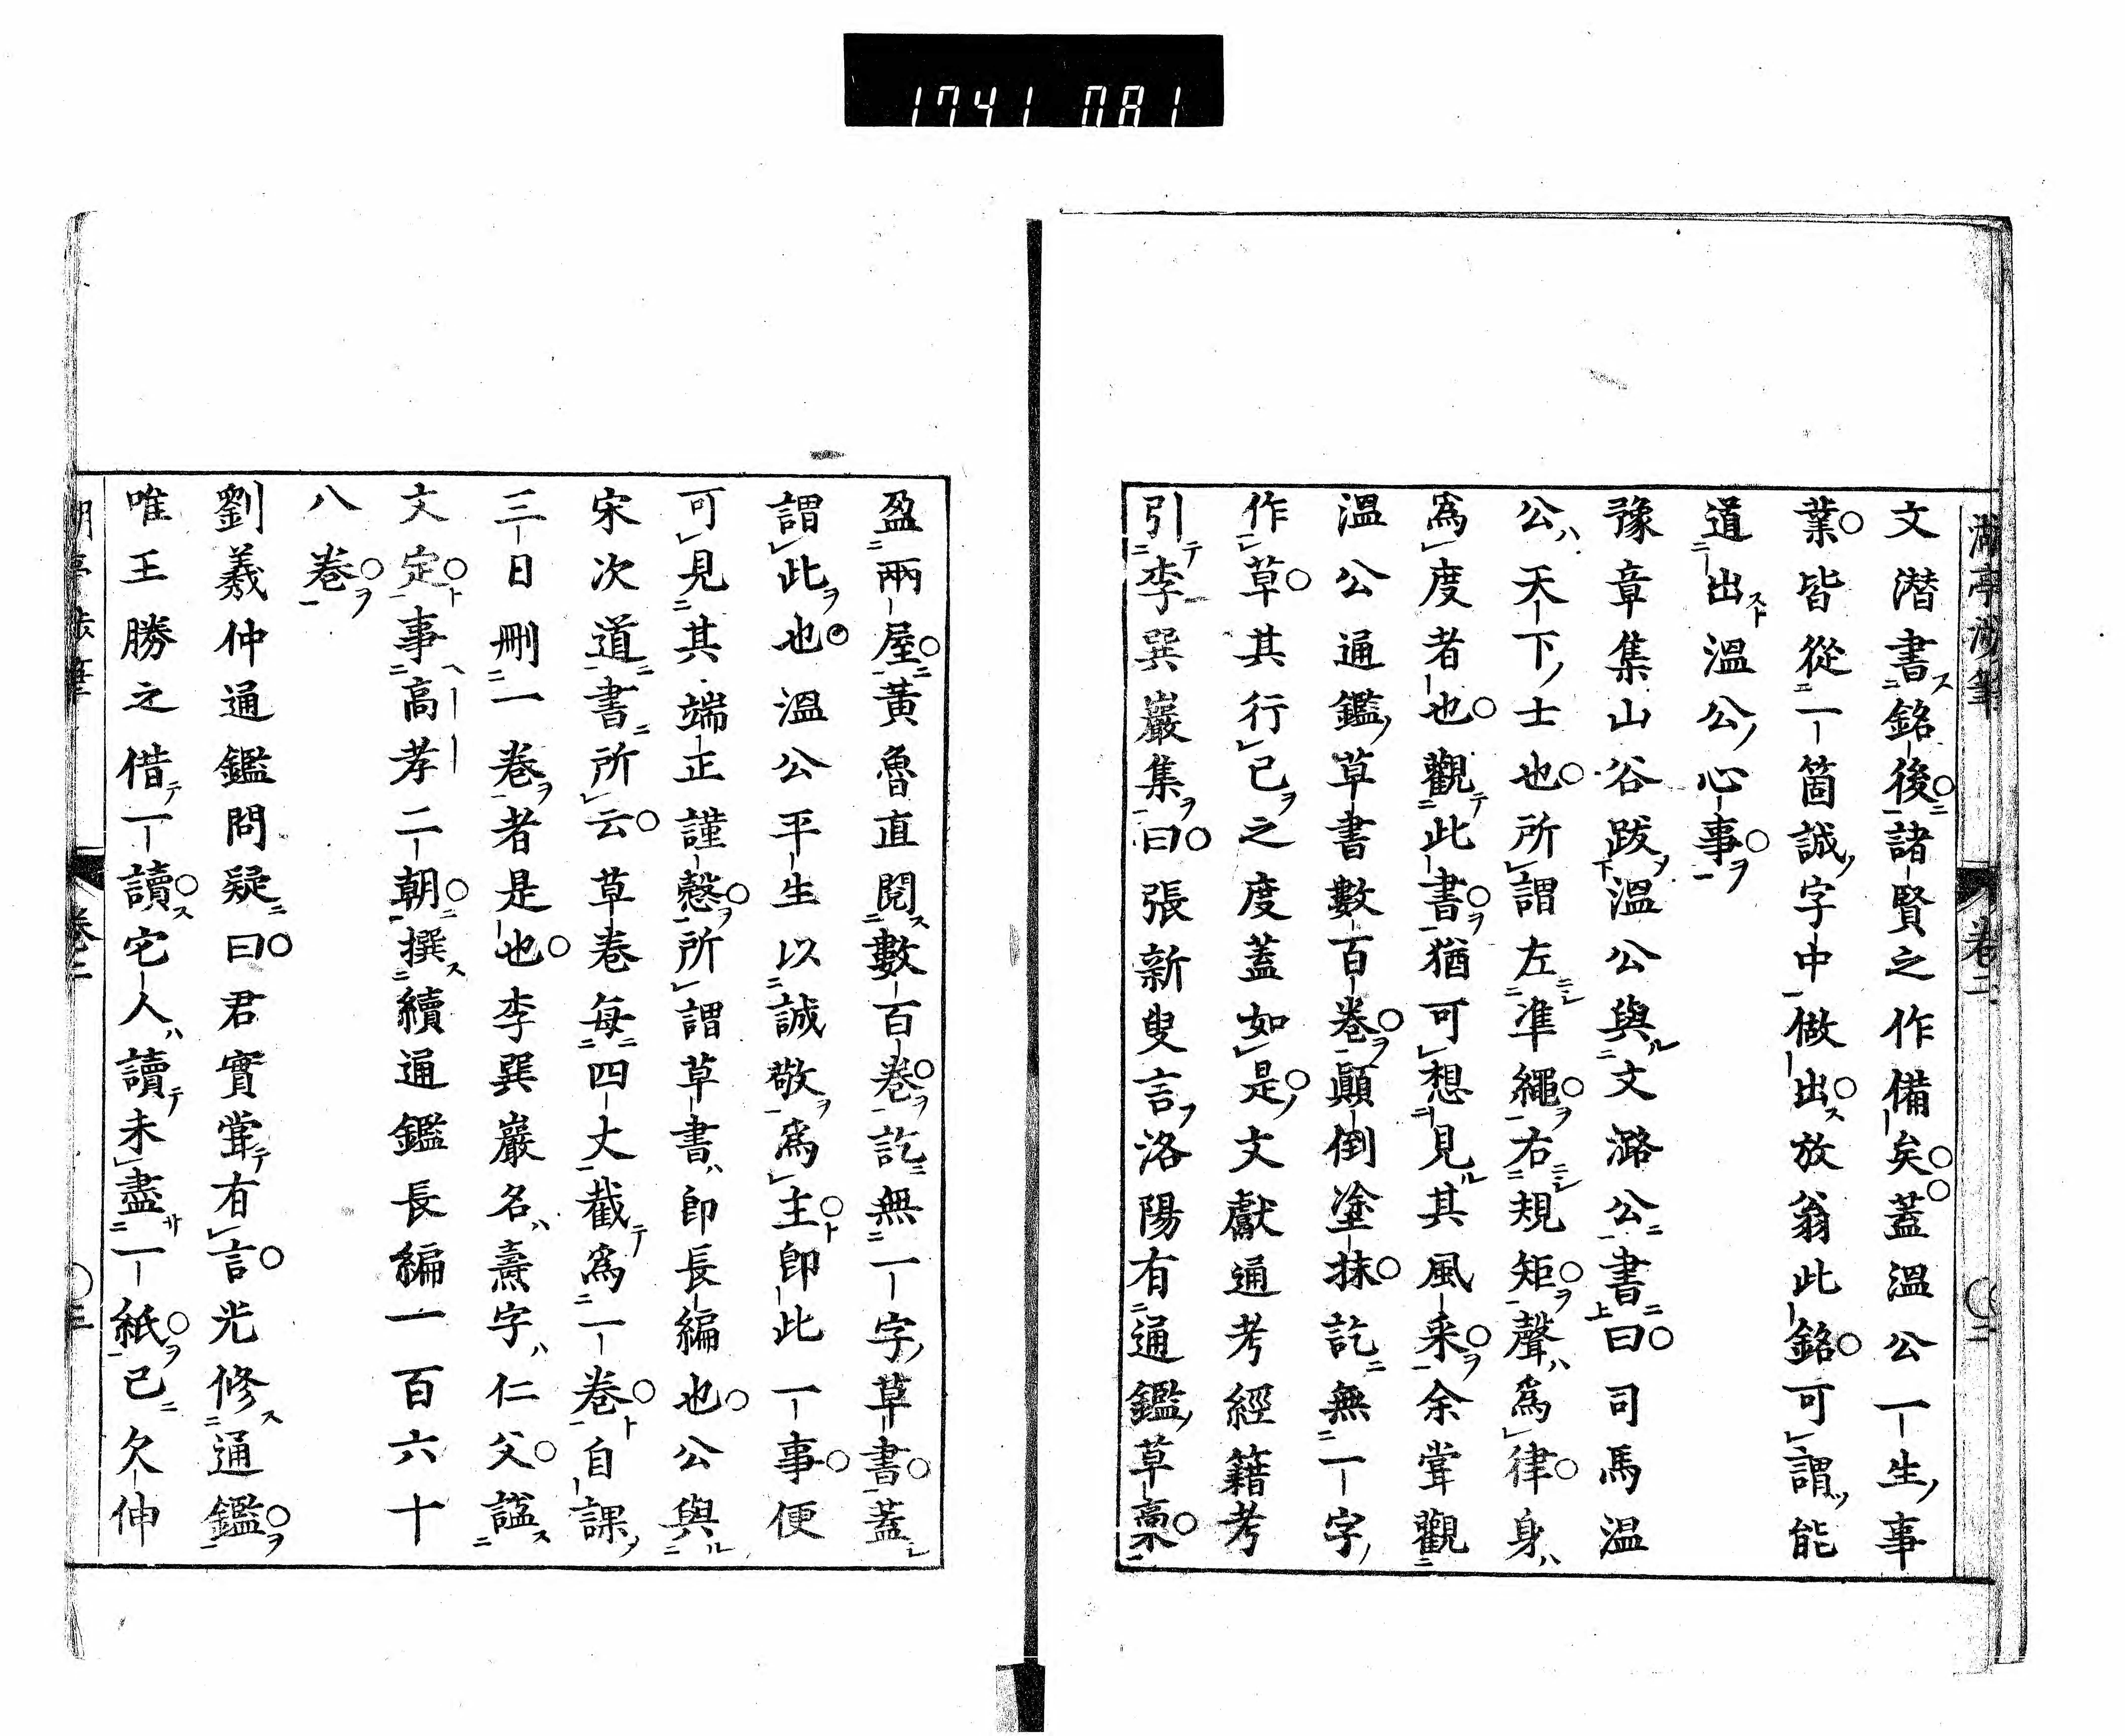 1741 081
文潜書銘後諸賢之作備矣蓋溫公一生事
業皆從一箇誠字中做出放翁此銘可謂能
道出溫公心事
豫章集山谷跋溫公與文潞公書曰司馬温
公天下士也所謂左準繩右規矩聲爲律身
爲度者也觀此書猶可想見其風采余甞觀
溫公通鑑草書數百卷顚倒塗抹訖無一字
作草其行己之度蓋如是文獻通考經籍考
引李巽巖集曰張新叟言洛陽有通鑑草藁不
盈兩屋黃魯直閱數百卷訖無一字草書蓋
謂此也溫公平生以誠敬爲主卽此一事便
可見其端正謹慤所謂草書卽長編也公與
宋次道書所云草卷每四丈截爲一卷自課
三日刪一卷者是也李巽巖名燾字仁父謚
文定事高孝二朝撰續通鑑長編一百六十
八卷
劉羲仲通鑑問疑曰君實甞有言光修通鑑
唯王勝之借一讀它人讀未盡一紙已欠伸
卷二